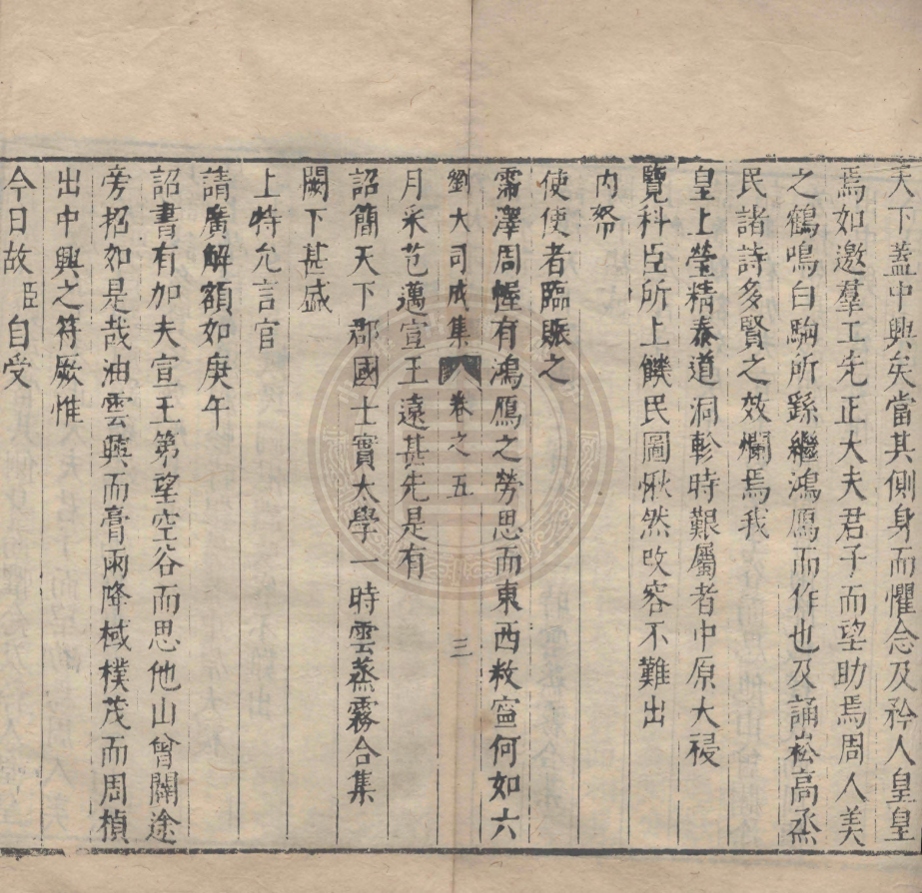 天下蓋中興矣當其側身而懼念及矜人皇皇
焉如邀羣工先正大夫君子而望助焉周人美
之鶴鳴白駒所繇繼鴻鴈而作也及誦崧高烝
民諸詩多賢之效爛焉我
皇上瑩精泰道洞軫時艱屬者中原大祲
覽科臣所上饑民圖愀然改容不難出
內帑
使使者臨賑之
霈澤周幄有鴻鴈之勞思而東西敉寧何如六
劉大司成集 卷之五 三
月采芑邁宣王遠甚先是有
詔簡天下郡國士實太學一時雲蒸霧合集
闕下甚盛
上特允言官
請廣解額如庚午
詔書有加夫宣王第望空谷而思他山曾闢途
旁招如是哉油雲興而膏雨降棫樸茂而周楨
出中興之符厥惟
今日故臣自受